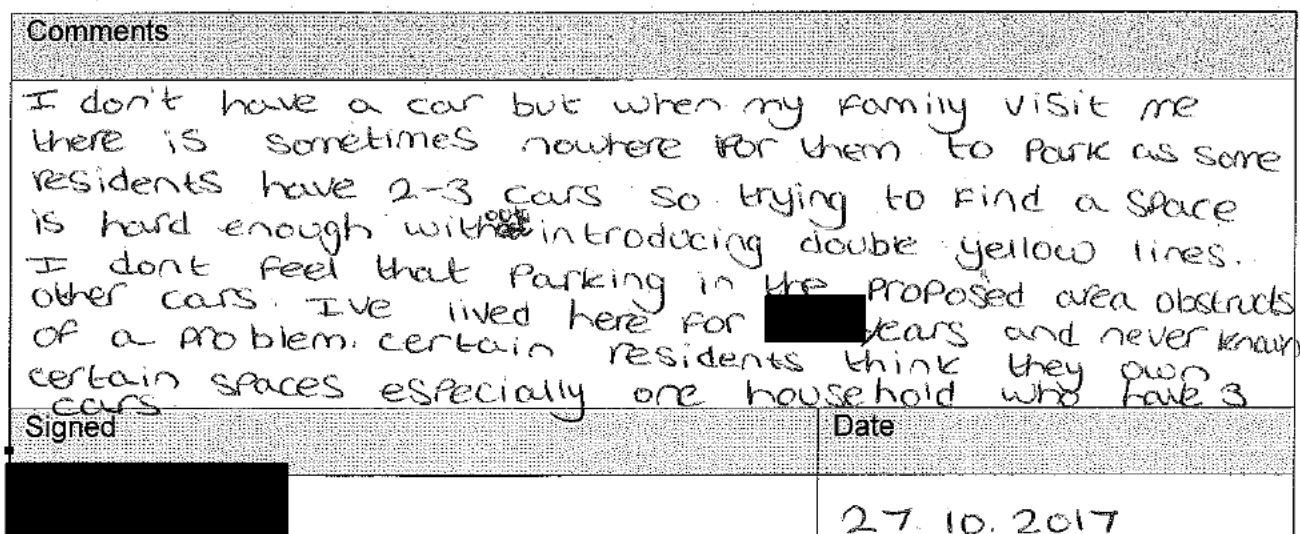 Comments
I don't have a car but when my family visit me
there is sometimes nowhere for them to park as some
residents have 2-3 cars so trying to find a space
is hard enough without introducing double yellow lines.
I dont feel that parking in the proposed area obstructs
other cars. I've lived here for years and never known
of a problem. certain residents think they own
certain spaces especially one household who have 3
cars
Signed
Date
27.10.2017